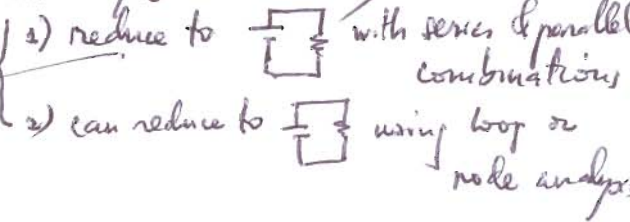 1) reduce to with series & parallel
combinations
2) can reduce to using loop or
node analysis